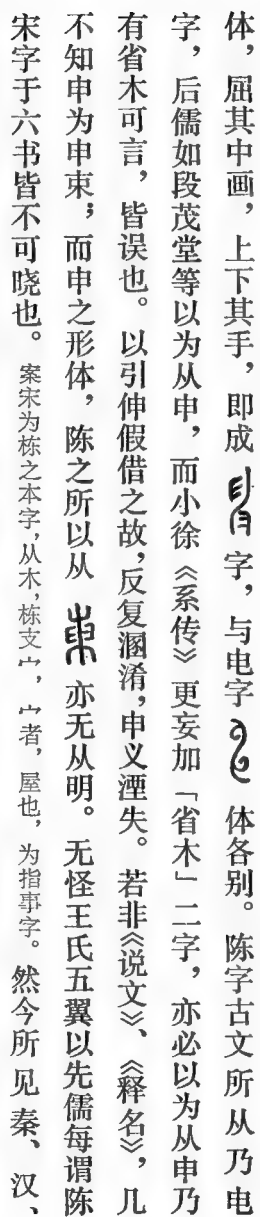 体，屈其中画，上下其手，即成字，与电字体各别。陈字古文所从乃电
字，后儒如段茂堂等以为从申，而小徐《系传》更妄加「省木」二字，亦必以为从申乃
有省木可言，皆误也。以引伸假借之故，反复溷淆，申义湮失。若非《说文》、《释名》，几
不知申为申束；而申之形体，陈之所以从亦无从明。无怪王氏五翼以先儒每谓陈
宋字于六书皆不可晓也。案宋为栋之本字，从木，栋支宀，宀者，屋也，为指事字。然今所见秦、汉、